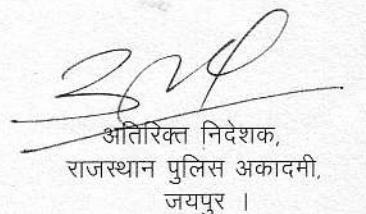 अतिरिक्त निदेशक,
राजस्थान पुलिस अकादमी,
जयपुर ।